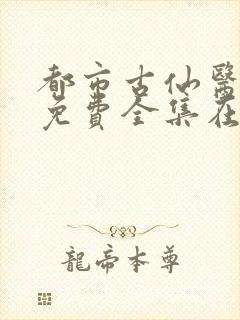 都市古仙醫
免費全集在
龍帝本尊